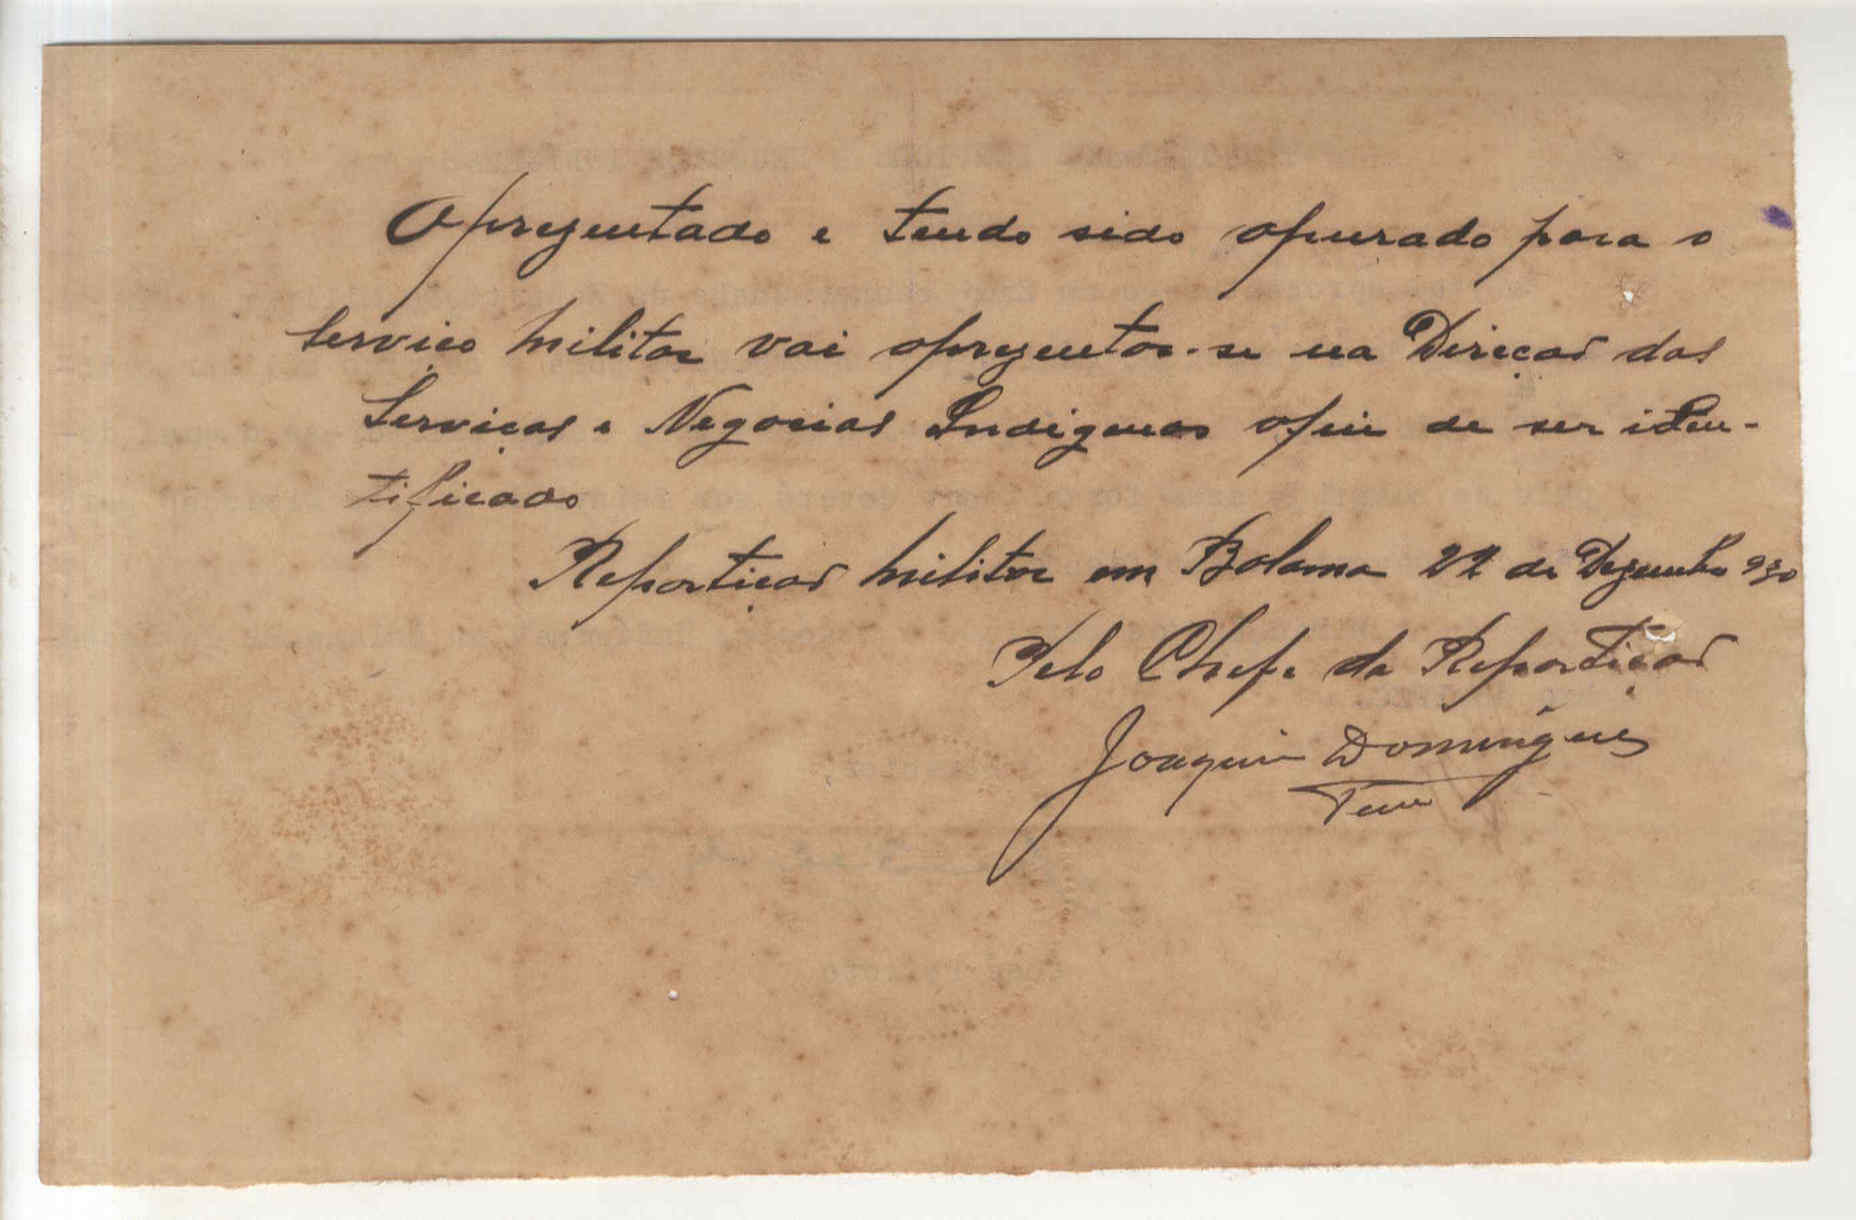 Apresentado e tendo sido apurado para o
serviço militar vai apresentar-se na Direcção dos
Serviços e Negocios Indigenas afim de ser iden-
tificado
Repartição Militar em Bolama 22 de Dezembro 930
Pelo Chefe da Repartição
Joaquim Domingues
Tene